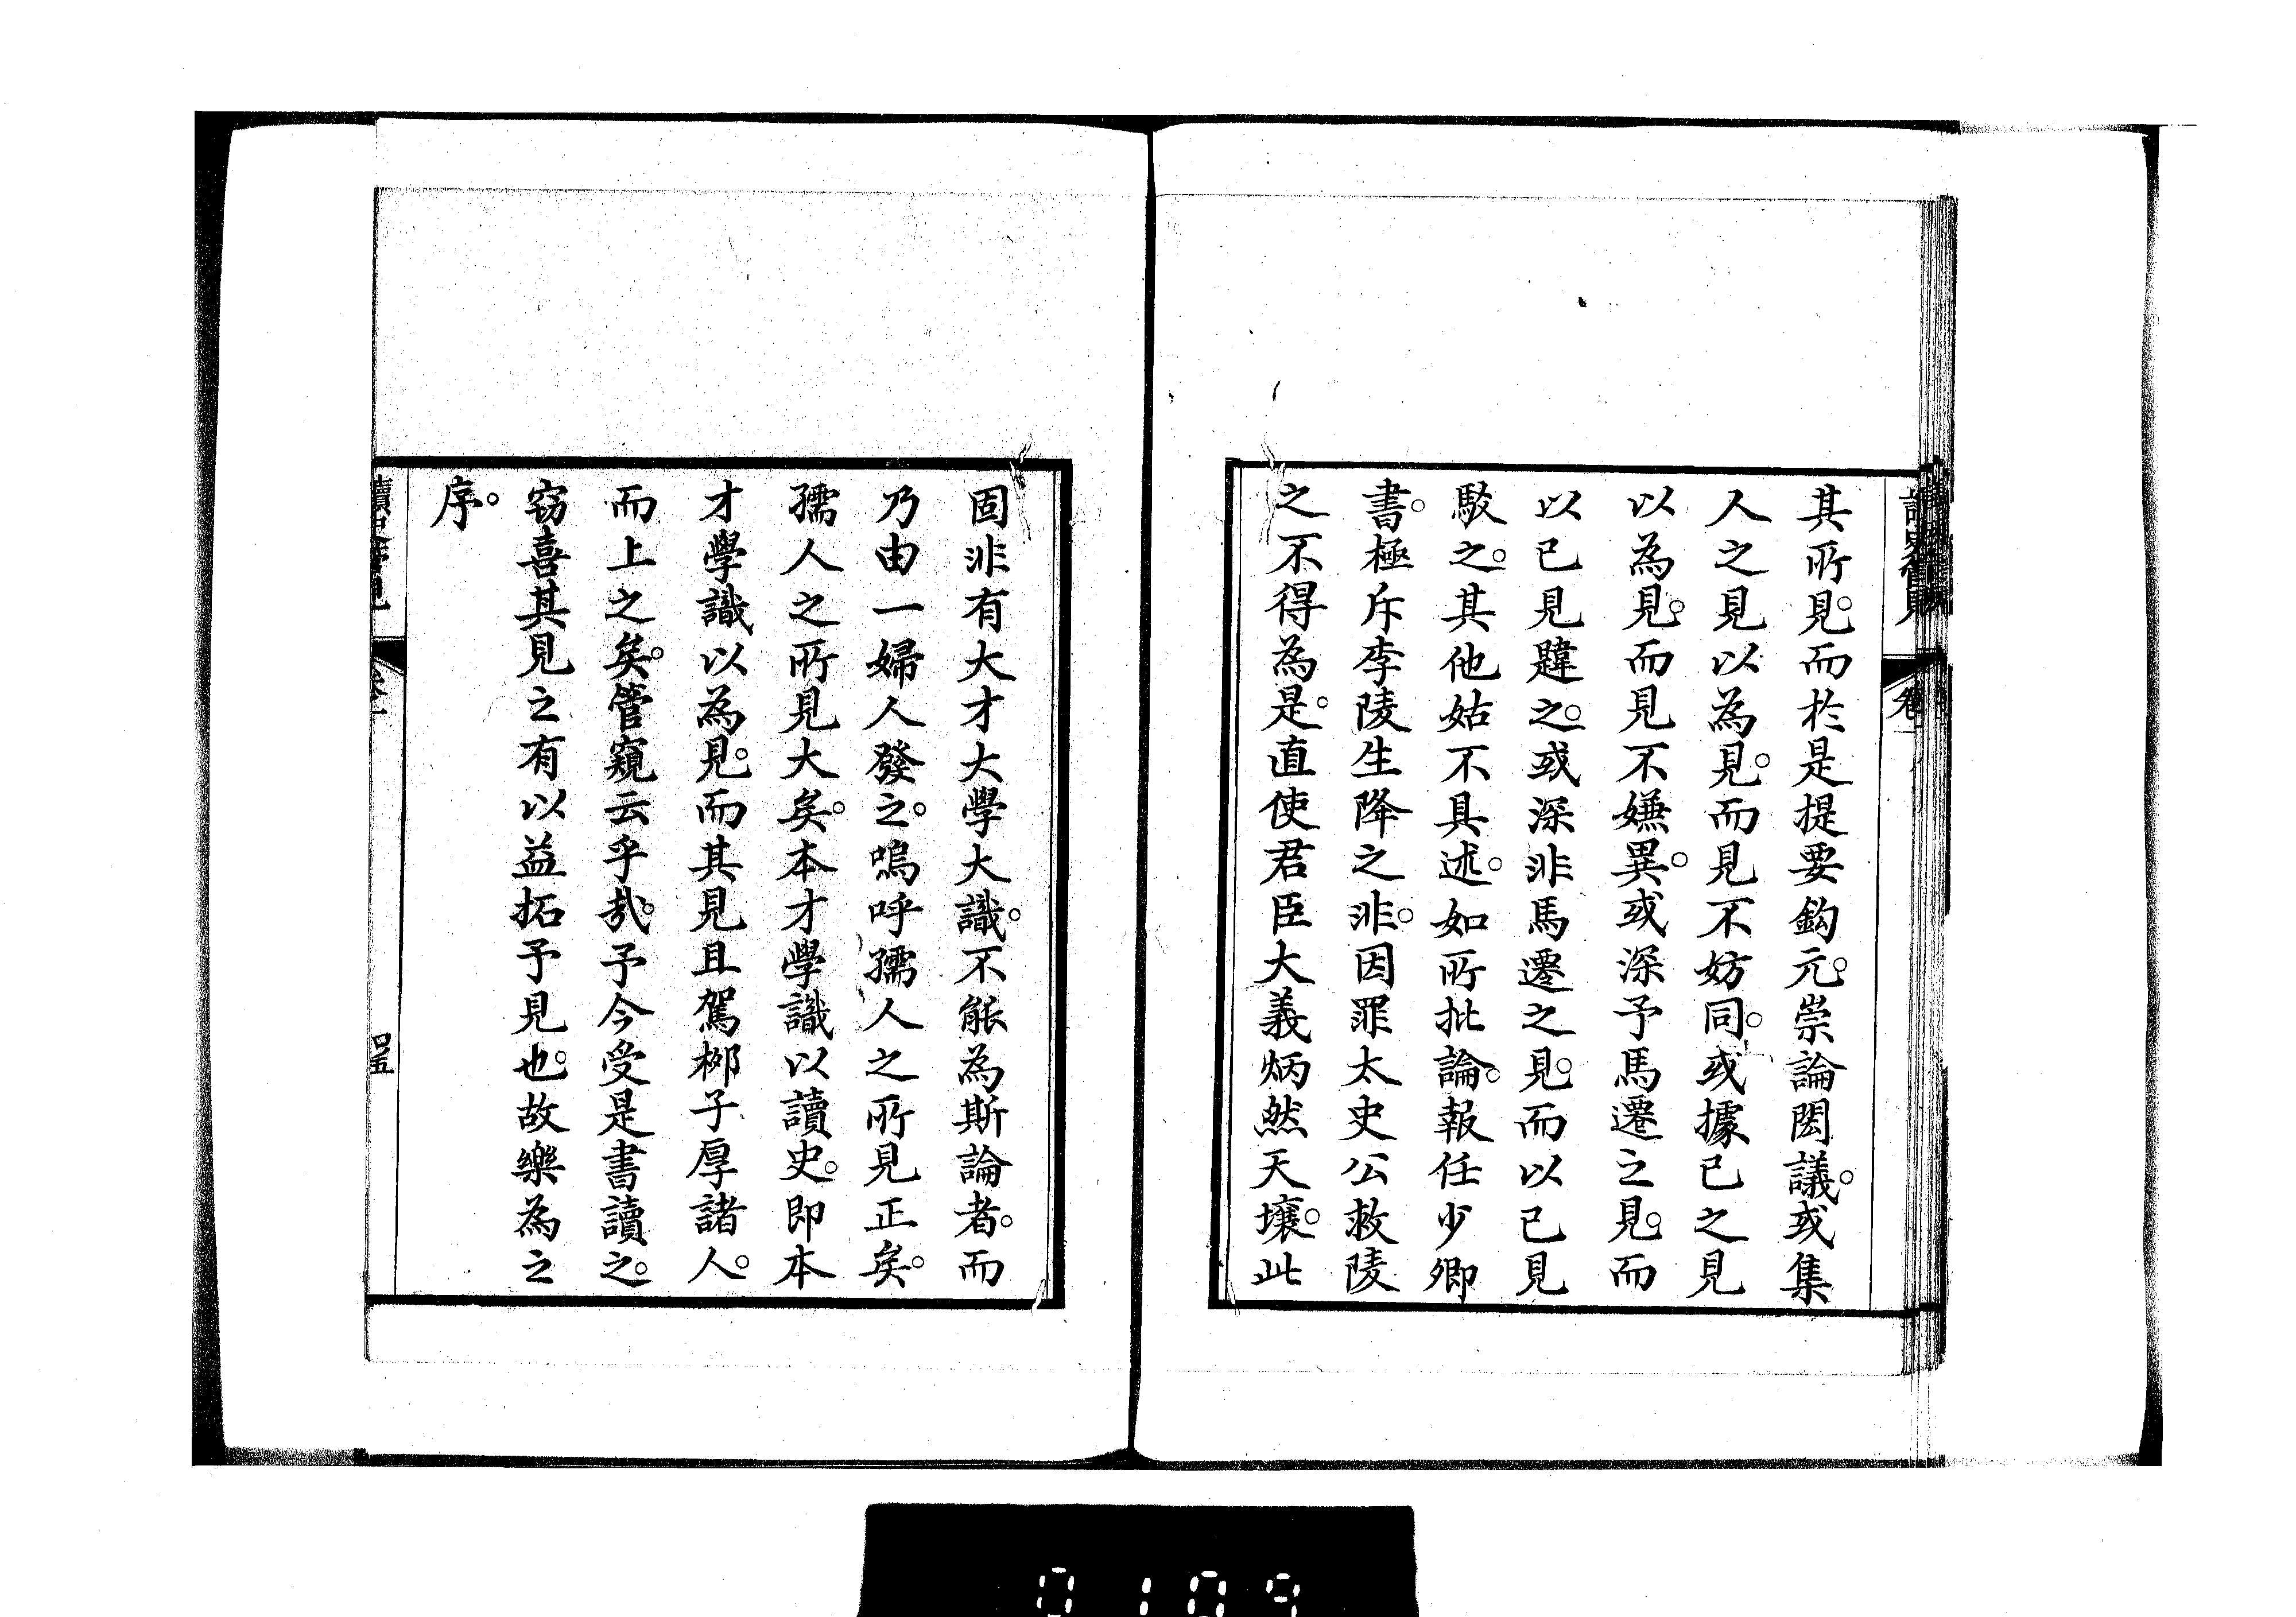 其所見。而於是提要鈎元。崇論閎議。或集
人之見以為見。而見不妨同。或據已之見
以為見。而見不嫌異。或深予馬遷之見。而
以已見韙之。或深非馬遷之見。而以已見
駁之。其他姑不具述。如所批論。報任少卿
書。極斥李陵生降之非。因罪太史公救陵
之不得為是。直使君臣大義炳然天壤。此
固非有大才大學大識。不能為斯論者。而
乃由一婦人發之。嗚呼孺人之所見正矣。
孺人之所見大矣。本才學識以讀史。即本
才學識以為見。而其見且駕柳子厚諸人。
而上之矣。管窺云乎哉。予今受是書讀之。
窃喜其見之有以益拓予見也。故樂為之
序。
讀史管見
卷一
0109